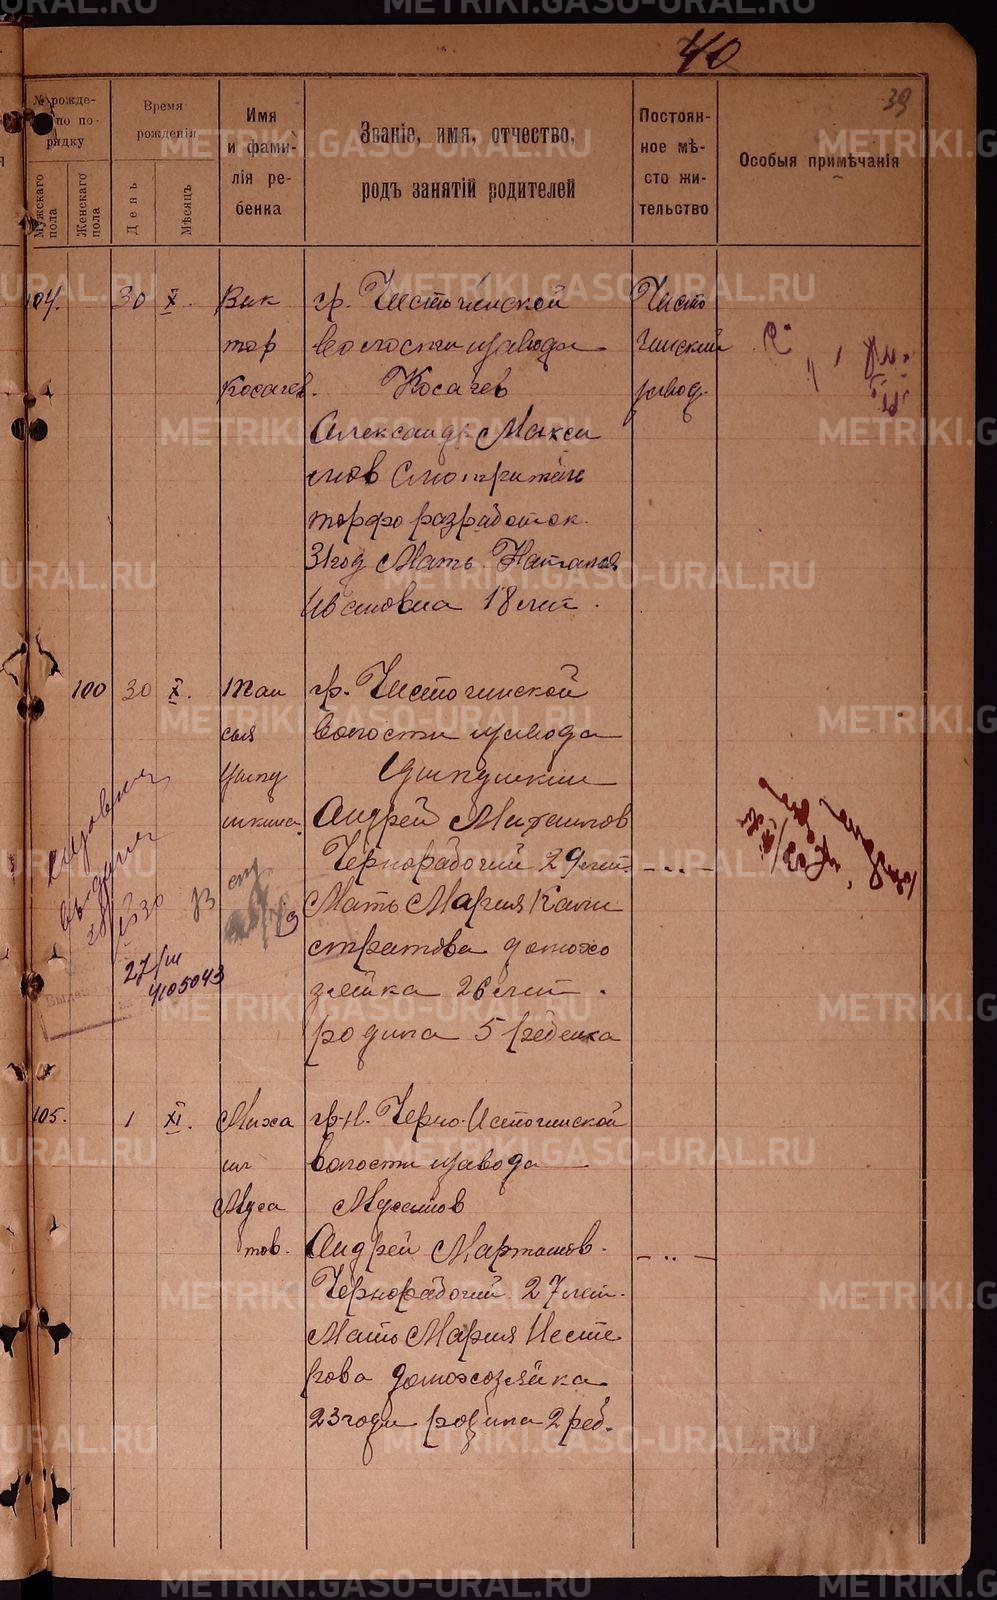 METRIKI.GASO-URAL.RU
40
39
№ рожде-
по по-
рядку
Мужскаго пола
Женскаго пола
Время
рожденія
День
Мѣсяцъ
Имя
и фами-
лія ре-
бенка
Званіе, имя, отчество,
родъ занятій родителей
Постоян-
ное мѣ-
сто жи-
тельство
Особыя примѣчанія
104. 30 X.
Вик
тор
Косачев.
гр. Чисточинской
волости завода
Косачев
Александр Макси
мов Смотритель
торфо разработок.
31 год Мать Наталья
Ивановна 18 лет.
Чисто
чинский
завод.
100 30 X.
Таи
сья
Цыпу
шкина
гр. Чисточинской
волости завода
Цыпушкин
Андрей Михаилов
Чернорабочий 29 лет.
Мать Мария Кали
стратова домохо
зяйка 26 лет.
родила 5 ребенка
- .. -
27/III
4105043
105. 1 XI.
Миха
ил
Муса
тов.
гр-н. Черно-Источинской
волости завода
Мусатов
Андрей Мартынов.
Чернорабочий 27 лет.
Мать Мария Несте
рова домохозяйка
23 годы родила 2 реб.
- .. -